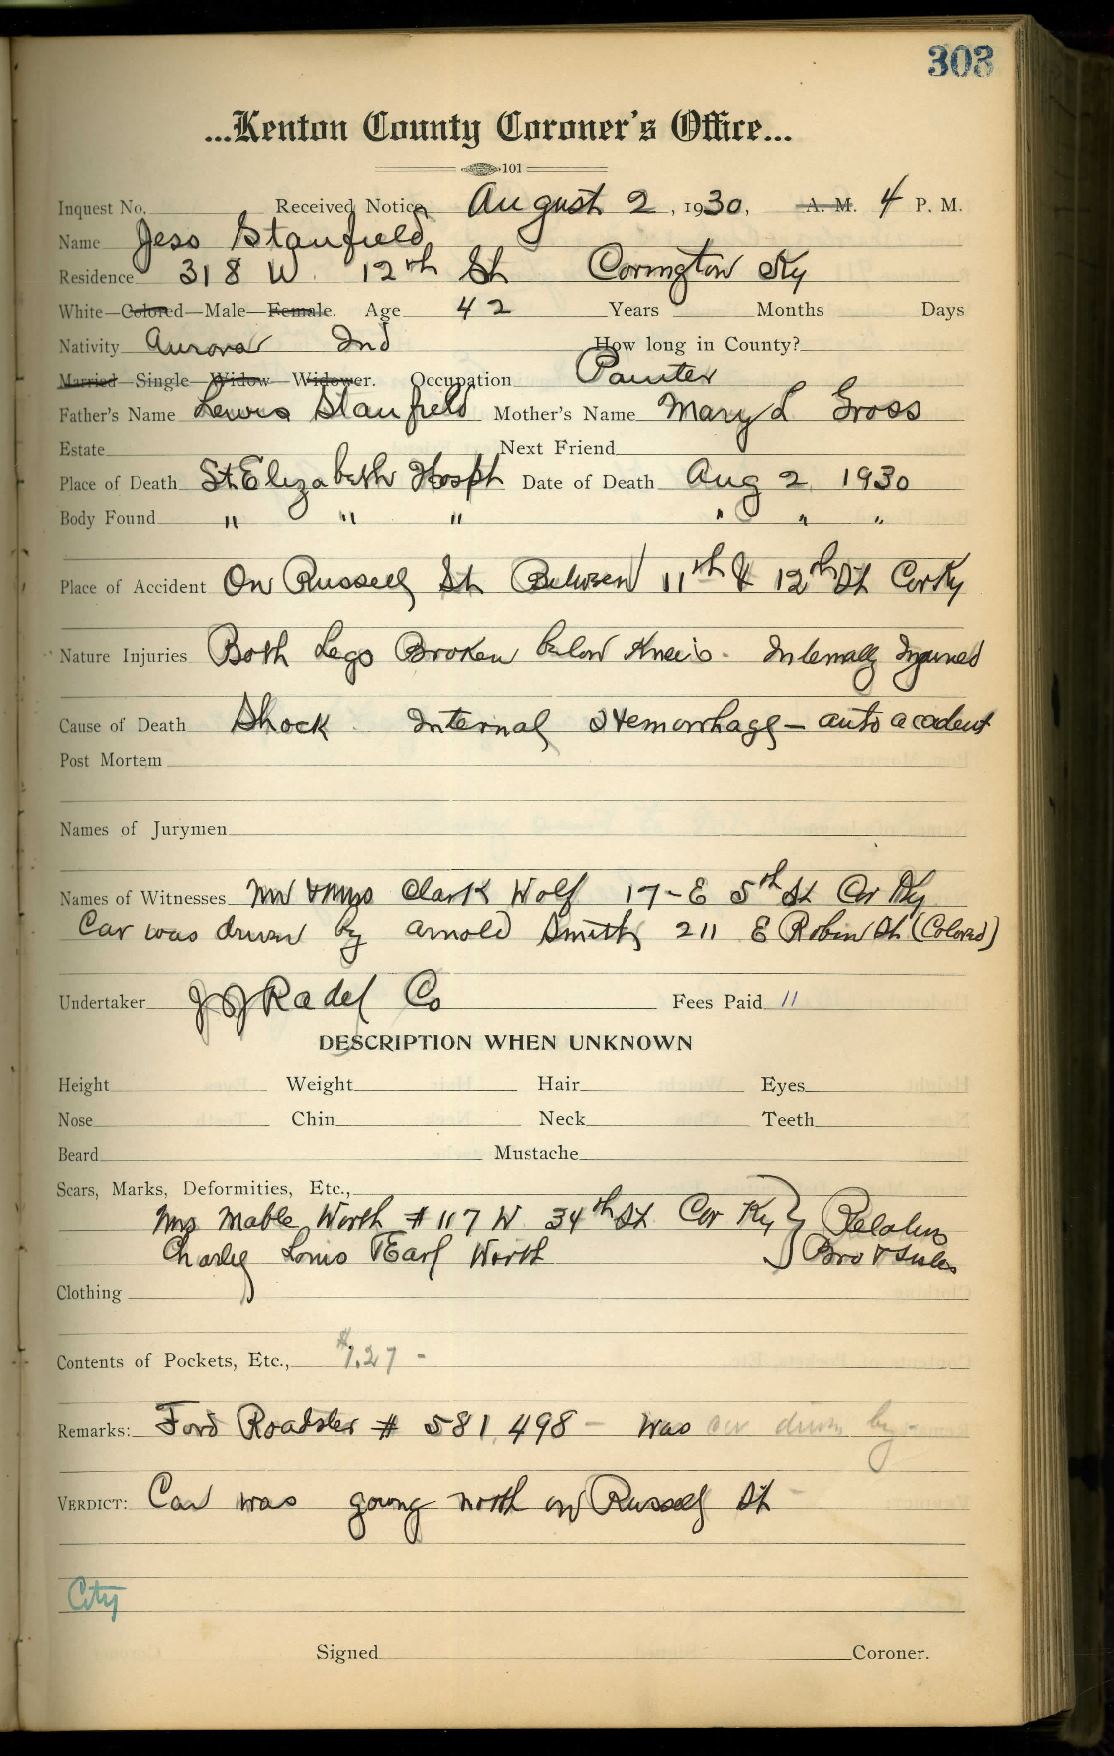 303
...Kenton County Coroner's Office...
101
Inquest No. Received Notice August 2, 1930, A. M. 4 P. M.
Name Jess Stanfield
Residence 318 W. 12th St Covington Ky
White—Colored—Male—Female. Age 42 Years Months Days
Nativity Aurora Ind How long in County?
Married—Single—Widow—Widower. Occupation Painter
Father's Name Lewis Stanfield Mother's Name Mary L Gross
Estate Next Friend
Place of Death St. Elizabeth Hosph Date of Death Aug 2 1930
Body Found " " " " " "
Place of Accident On Russell St. Between 11th & 12th St Cov Ky
Nature Injuries Both Legs Broken below Knees. Internally Injured
Cause of Death Shock Internal Hemorrhage — auto accident
Post Mortem
Names of Jurymen
Names of Witnesses Mr & Mrs Clark Wolf 17-E 5th St Cov Ky
Car was driven by Arnold Smith 211 E Robin St (Colored)
Undertaker J J Radel Co Fees Paid 11
DESCRIPTION WHEN UNKNOWN
Height Weight Hair Eyes
Nose Chin Neck Teeth
Beard Mustache
Scars, Marks, Deformities, Etc.,
Mrs Mable Worth # 117 W 34th St Cov Ky
Charley Louis & Earl Worth Bro &
Clothing
Contents of Pockets, Etc., $1.27 -
Remarks: Ford Roadster # 581,498 — was car driven by -
VERDICT: Car was going north on Russell St
City
Signed Coroner.